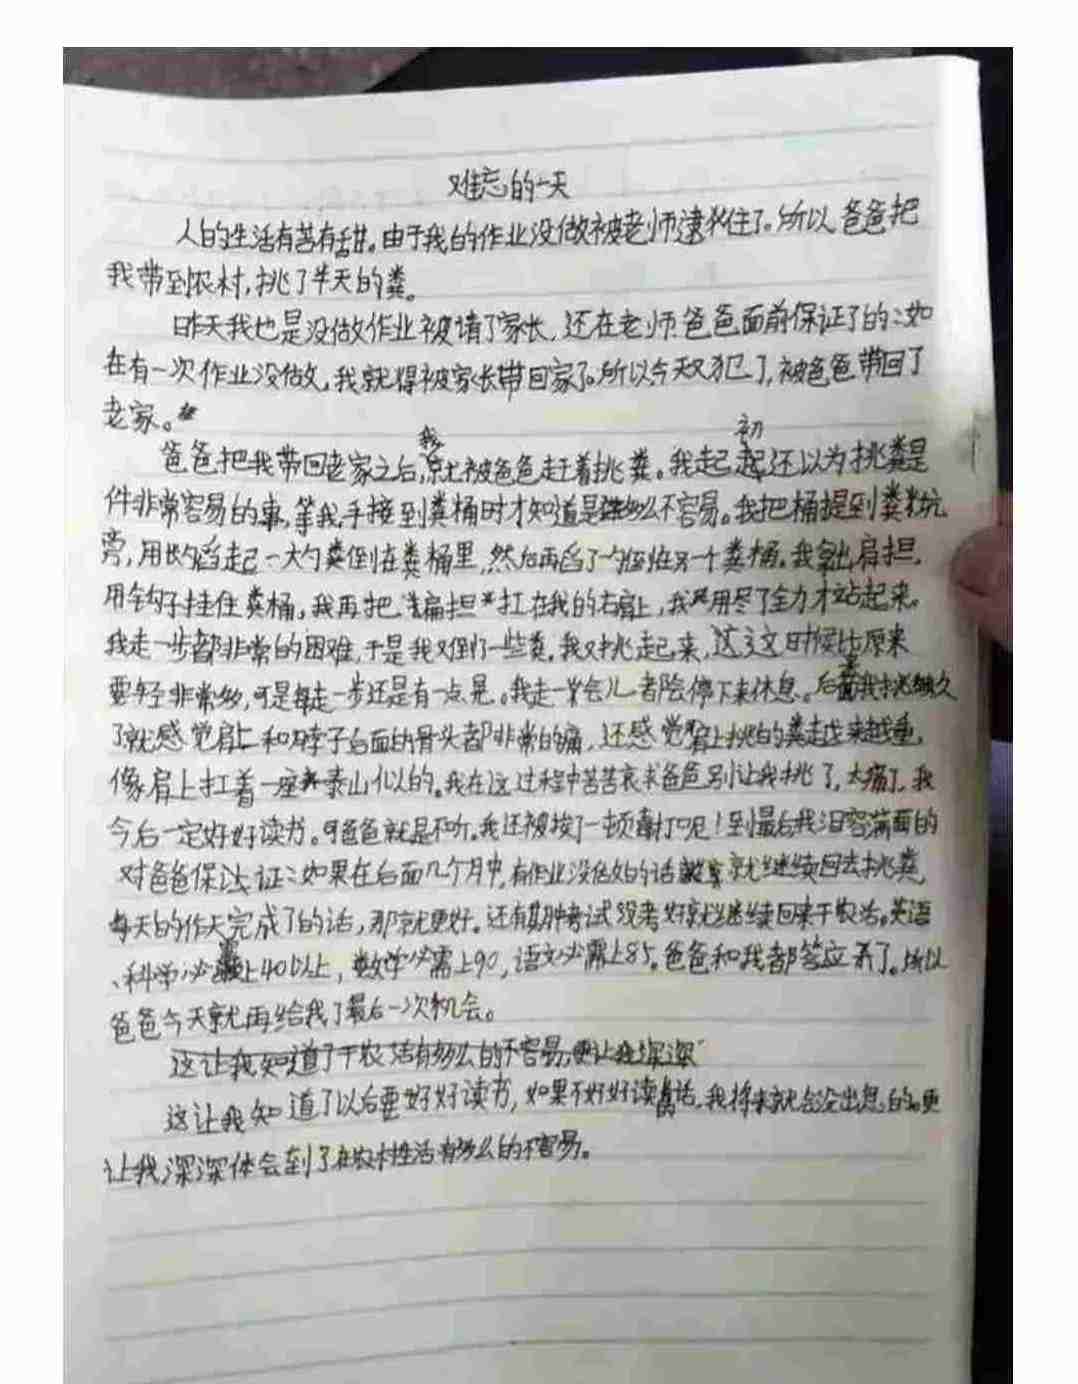 难忘的一天
人的生活有苦有甜。由于我的作业没做被老师逮住了。所以爸爸把
我带到农村,挑了半天的粪。
昨天我也是没做作业被请了家长,还在老师爸爸面前保证了的:如
在有一次作业没做,我就得被家长带回家了。所以今天又犯了,被爸爸带回了
老家。
爸爸把我带回老家之后,我就被爸爸赶着挑粪。我起初还以为挑粪是
件非常容易的事,等我手接到粪桶时才知道是多么不容易。我把桶提到粪坑
旁,用长勺舀起一大勺粪倒在粪桶里,然后再舀了一勺倒在另一个粪桶。我拿出肩担,
用钩子挂住粪桶,我再把扁担扛在我的右肩上,我用尽了全力才站起来。
我走一步都非常的困难,于是我又倒了一些粪。我又挑起来,这次这时候比原来
要轻非常多,可是每走一步还是有一点晃。我走一会儿都会停下来休息。后面我挑久
了就感觉肩上和脖子后面的骨头都非常的痛,还感觉肩上挑的粪越来越重,
像肩上扛着一座泰山似的。我在这过程中苦苦哀求爸爸别让我挑了,太痛了,我
今后一定好好读书。可爸爸就是不听。我还被按了一顿毒打呢!到最后我泪容满面的
对爸爸保证:如果在后面几个月中,有作业没做的话就继续回去挑粪,
每天的作天完成了的话,那就更好。还有期中考试没考好就继续回来干农活。英语
、科学必需上40以上,数学必需上90,语文必需上85。爸爸和我都答应了。所以
爸爸今天就再给我了最后一次机会。
这让我知道了干农活有多么的不容易,更让我深深
这让我知道了以后要好好读书,如果不好好读书的话,我将来就会没出息的。更
让我深深体会到了在农村生活有多么的不容易。